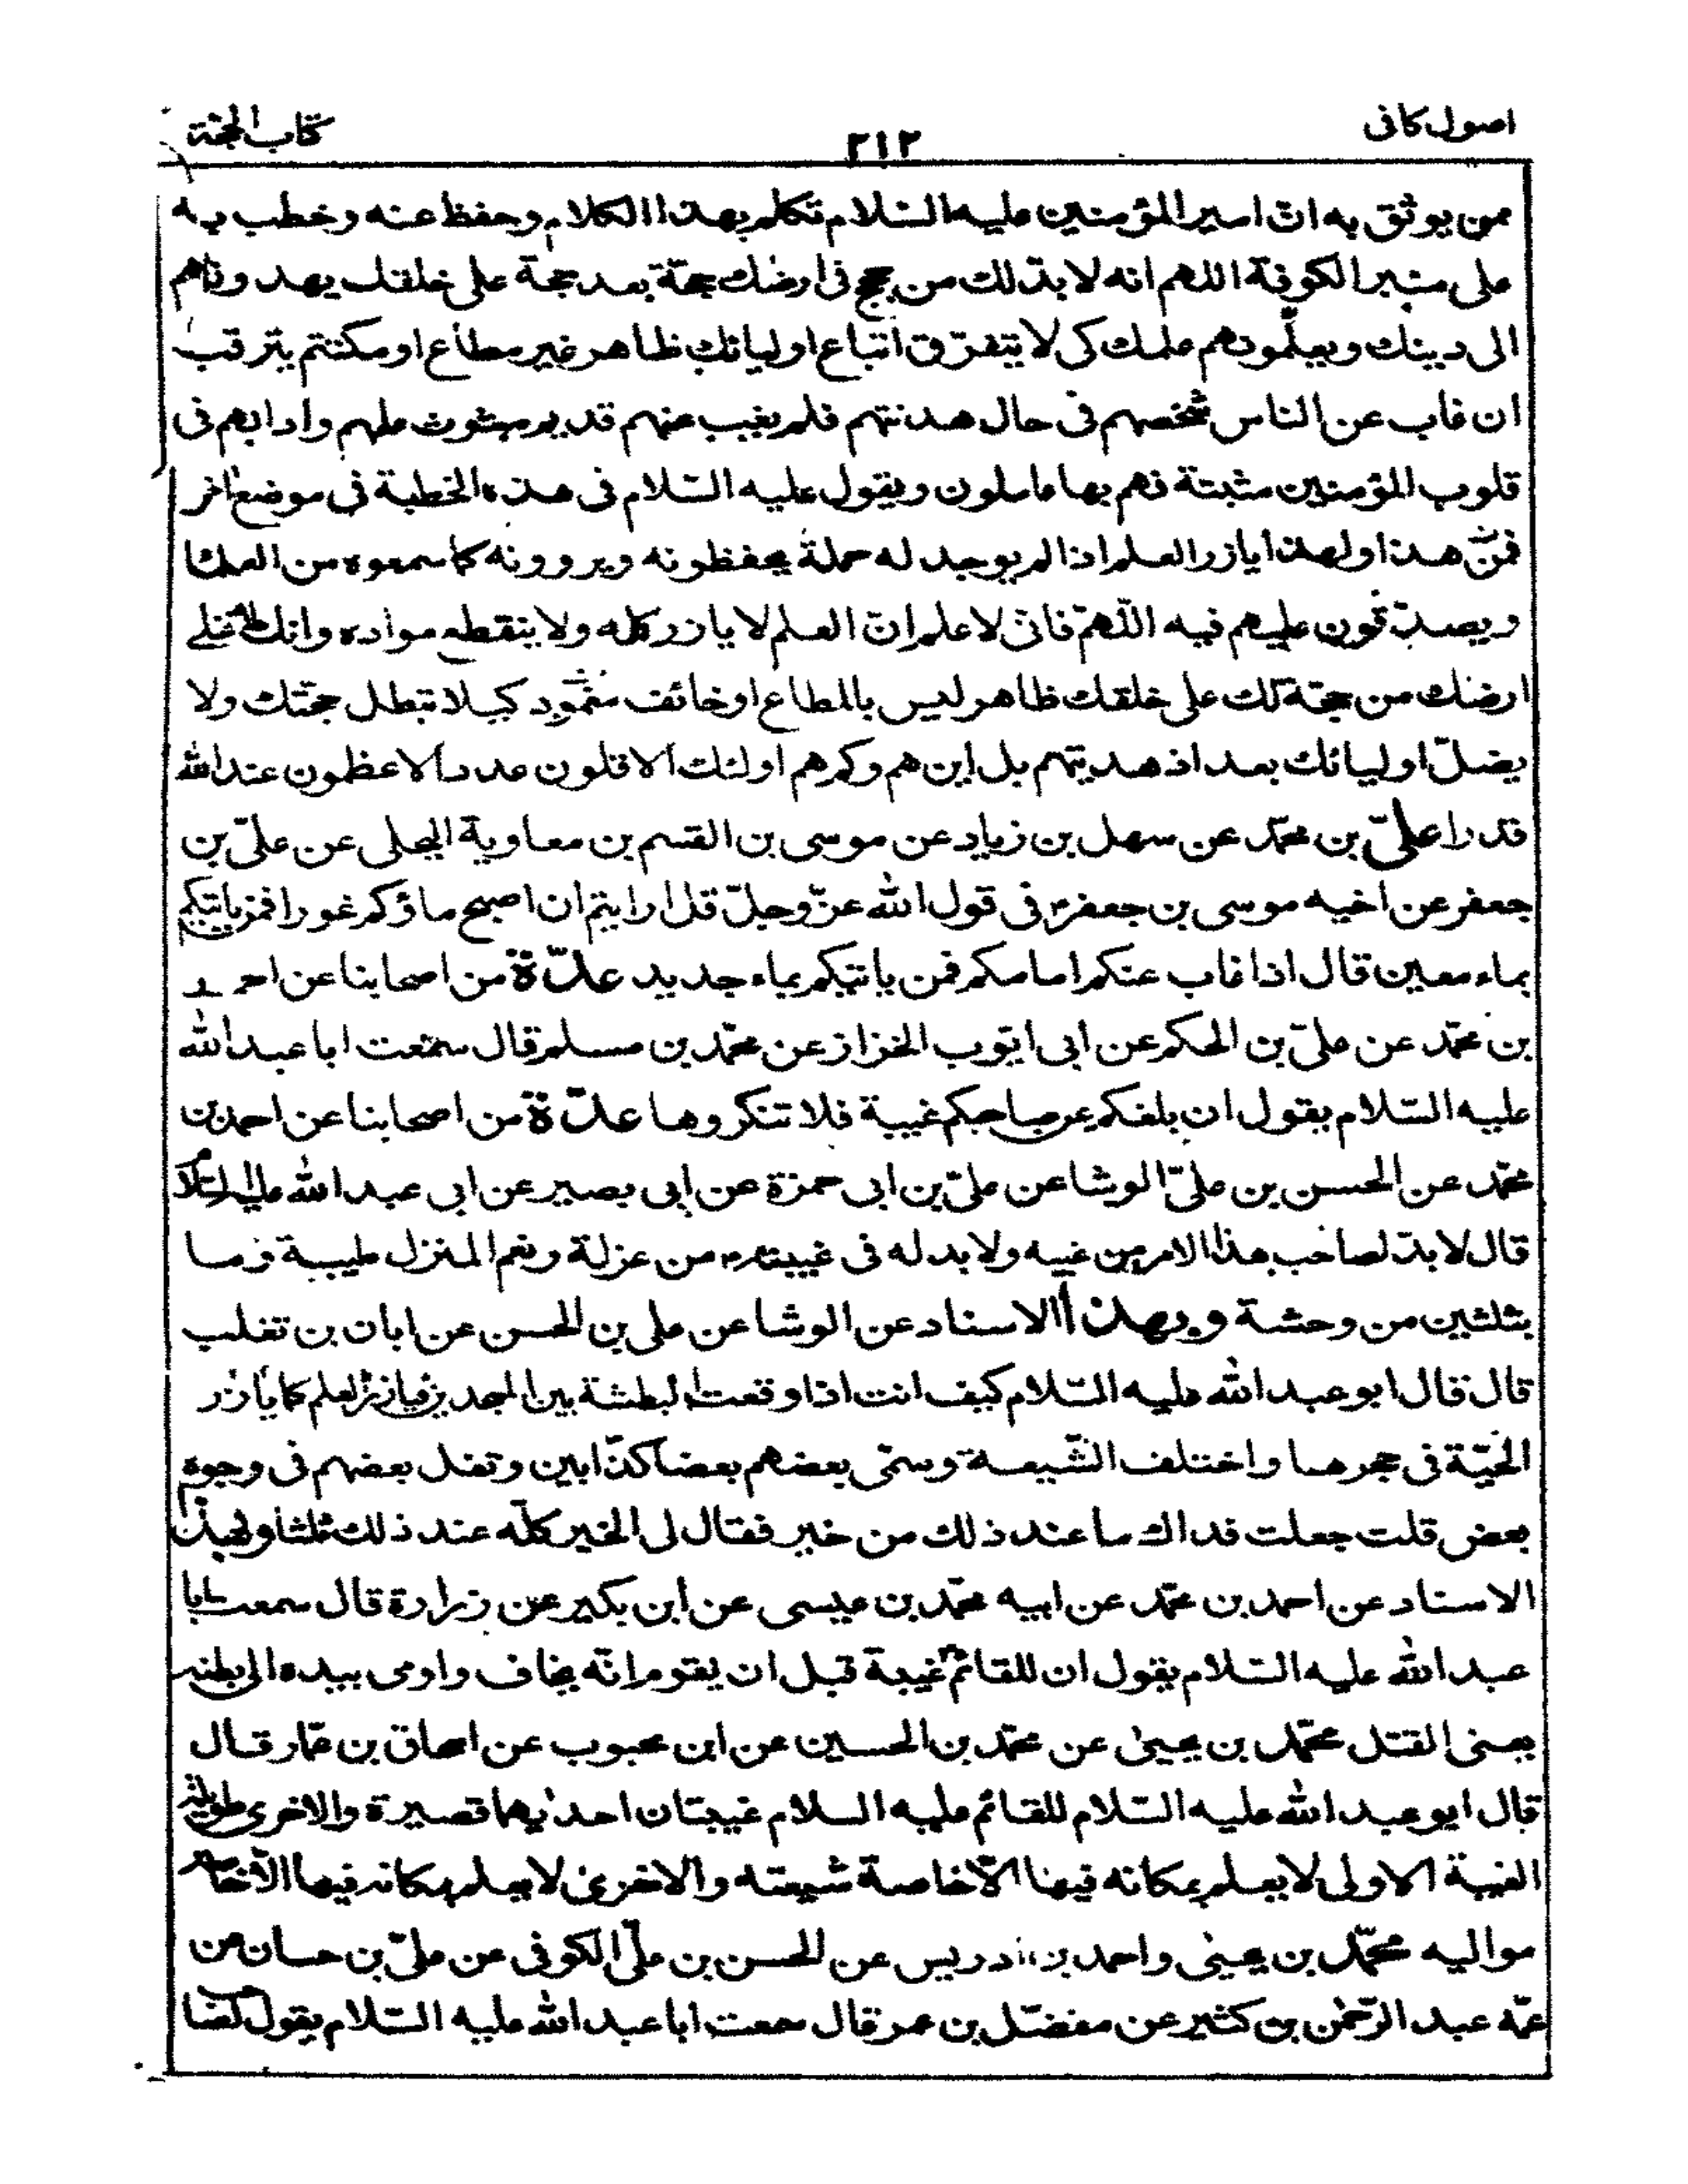 اصول كافى
٢١٢
كتاب الحجّة
ممن يوثق به انّ امير المؤمنين عليه السّلام تكلم بهذا الكلام وحفظ عنه وخطب به
على منبر الكوفة اللهم انه لا بدّ لك من حجج فى ارضك حجّة بعد حجة على خلقك يهدونهم
الى دينك ويعلّمونهم علمك كى لا يتفرّق اتباع اوليائك ظاهر غير مطاع او مكتتم يترقب
ان غاب عن الناس شخصهم فى حال هدنتهم فلم يغيب عنهم قديم مبثوث علمهم وادابهم فى
قلوب المؤمنين مثبتة فهم بها عاملون ويقول عليه السّلام فى هذه الخطبة فى موضع اخر
فمن هذا ولهذا يازر العلم اذا لم يوجد له حملة يحفظونه ويروونه كما سمعوه من العلما
ويصدّقون عليهم فيه اللّهمّ فانّى لاعلم انّ العلم لا يازر كله ولا ينقطع مواده وانك لا تخلى
ارضك من حجّة لك على خلقك ظاهر ليس بالمطاع او خائف مغمود كيلا تبطل حجّتك ولا
يضلّ اوليائك بعد اذ هديتهم بل اين هم وكم هم اولئك الاقلون عددا الاعظمون عند الله
قدرا علىّ بن محمّد عن سهل بن زياد عن موسى بن القسم بن معاوية البجلى عن علىّ بن
جعفر عن اخيه موسى بن جعفر ع فى قول الله عزّ وجلّ قل ارايتم ان اصبح ماؤكم غورا فمن ياتيكم
بماء معين قال اذا غاب عنكم امامكم فمن ياتيكم بماء جديد عدّة من اصحابنا عن احمد
بن محمّد عن علىّ بن الحكم عن ابى ايّوب الخزاز عن محمّد بن مسلم قال سمعت ابا عبد الله
عليه السّلام يقول ان بلغكم عن صاحبكم غيبة فلا تنكروها عدّة من اصحابنا عن احمد بن
محمّد عن الحسن بن علىّ الوشا عن علىّ بن ابى حمزة عن ابى بصير عن ابى عبد الله عليه السّلام
قال لا بدّ لصاحب هذا الامر من غيبه ولا بد له فى غيبته من عزلة ونعم المنزل طيبة وما
بثلثين من وحشة وبهذا الاسناد عن الوشا عن على بن الحسن عن ابان بن تغلب
قال قال ابو عبد الله عليه السّلام كيف انت اذا وقعت البطشة بين المسجدين فيازر العلم كما يازر
الحيّة فى حجرها واختلف الشّيعة وسمّى بعضهم بعضا كذّابين وتفل بعضهم فى وجوه
بعض قلت جعلت فداك ما عند ذلك من خير فقال لى الخير كلّه عند ذلك ثلثا وبهذا
الاسناد عن احمد بن محمّد عن ابيه محمّد بن عيسى عن ابن بكير عن زرارة قال سمعت ابا
عبد الله عليه السّلام يقول ان للقائم ع غيبة قبل ان يقوم انّه يخاف واومى بيده الى بطنه
يعنى القتل محمّد بن يحيىٰ عن محمّد بن الحسين عن ابن محبوب عن اسحاق بن عمّار قال
قال ابو عبد الله عليه السّلام للقائم عليه السلام غيبتان احدٰيهما قصيرة والاخرى طويلة
الغيبة الاولى لا يعلم بمكانه فيها الّا خاصة شيعته والاخرى لا يعلم بمكانه فيها الّا خاصة
مواليه محمّد بن يحيىٰ واحمد بن ادريس عن الحسن بن علىّ الكوفى عن علىّ بن حسان عن
عمّه عبد الرّحمٰن بن كثير عن مفضّل بن عمر قال سمعت ابا عبد الله عليه السّلام يقول لصاحب